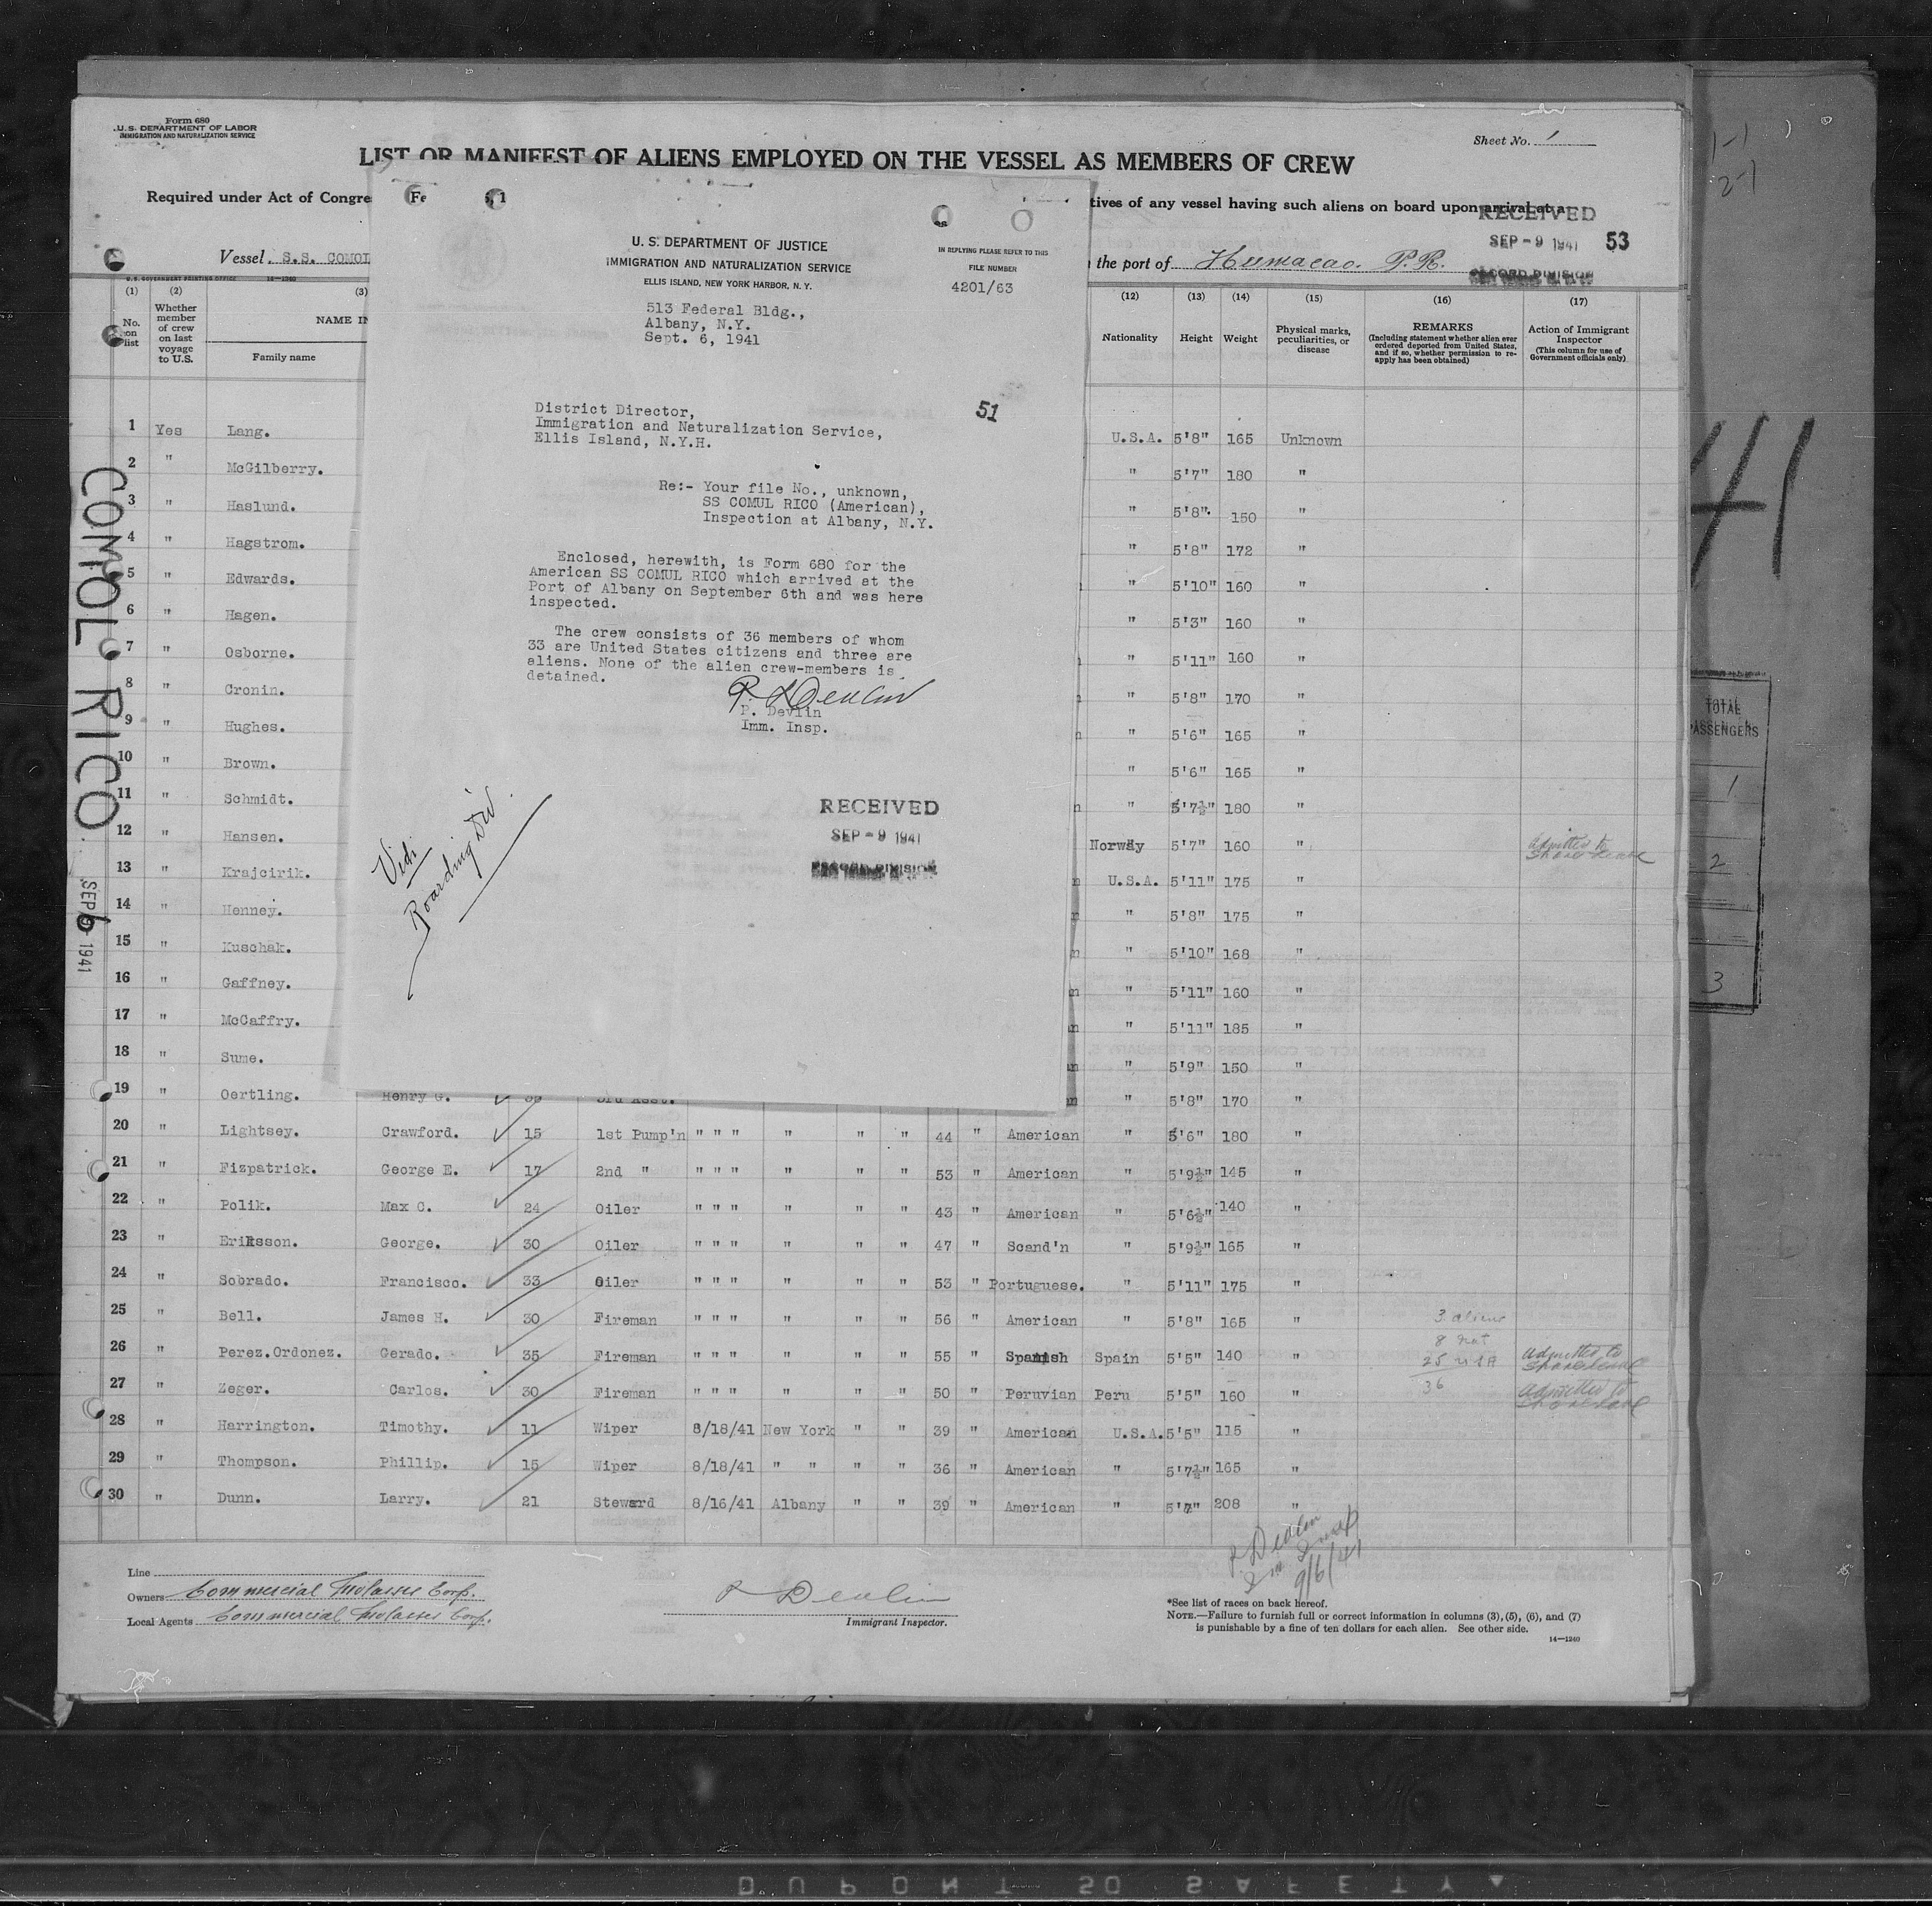 Form 680
U.S. DEPARTMENT OF LABOR
IMMIGRATION AND NATURALIZATION SERVICE
Sheet No. 1
LIST OR MANIFEST OF ALIENS EMPLOYED ON THE VESSEL AS MEMBERS OF CREW
Required under Act of Congre
tives of any vessel having such aliens on board upon arrival at a
RECEIVED
SEP - 9 1941 53
RECORD DIVISION
Vessel S.S. COMOL
the port of Humacao. P.R.
U.S. GOVERNMENT PRINTING OFFICE 14—1240
U. S. DEPARTMENT OF JUSTICE
IMMIGRATION AND NATURALIZATION SERVICE
ELLIS ISLAND, NEW YORK HARBOR, N. Y.
IN REPLYING PLEASE REFER TO THIS
FILE NUMBER
4201/63
513 Federal Bldg.,
Albany, N.Y.
Sept. 6, 1941
51
District Director,
Immigration and Naturalization Service,
Ellis Island, N.Y.H.
Re:- Your file No., unknown,
SS COMUL RICO (American),
Inspection at Albany, N.Y.
Enclosed, herewith, is Form 680 for the
American SS COMUL RICO which arrived at the
Port of Albany on September 6th and was here
inspected.
The crew consists of 36 members of whom
33 are United States citizens and three are
aliens. None of the alien crew-members is
detained.
P. Devlin
P. Devlin
Imm. Insp.
RECEIVED
SEP - 9 1941
RECORD DIVISION
Boarding Div.
COMOL RICO
SEP 6 1941
(1) (2) (3) (12) (13) (14) (15) (16) (17)
No. on list
Whether member of crew on last voyage to U.S.
NAME IN
Family name
Nationality
Height
Weight
Physical marks, peculiarities, or disease
REMARKS
(Including statement whether alien ever ordered deported from United States, and if so, whether permission to re-apply has been obtained)
Action of Immigrant Inspector
(This column for use of Government officials only)
1 Yes Lang. U.S.A. 5'8" 165 Unknown
2 " McGilberry. " 5'7" 180 "
3 " Haslund. " 5'8" 150 "
4 " Hagstrom. " 5'8" 172 "
5 " Edwards. " 5'10" 160 "
6 " Hagen. " 5'3" 160 "
7 " Osborne. " 5'11" 160 "
8 " Cronin. " 5'8" 170 "
9 " Hughes. " 5'6" 165 "
10 " Brown. " 5'6" 165 "
11 " Schmidt. " 5'7½" 180 "
12 " Hansen. Norway 5'7" 160 " Admitted to shore leave
13 " Krajcirik. U.S.A. 5'11" 175 "
14 " Henney. " 5'8" 175 "
15 " Kuschak. " 5'10" 168 "
16 " Gaffney. " 5'11" 160 "
17 " McCaffry. " 5'11" 185 "
18 " Sume. " 5'9" 150 "
19 " Oertling. Henry G. 3rd Asst. " 5'8" 170 "
20 " Lightsey. Crawford. 15 1st Pump'n " " " " " " 44 " American " 5'6" 180 "
21 " Fizpatrick. George E. 17 2nd " " " " " " " 53 " American " 5'9½" 145 "
22 " Polik. Max C. 24 Oiler " " " " " " 43 " American " 5'6½" 140 "
23 " Eriksson. George. 30 Oiler " " " " " " 47 " Scand'n " 5'9½" 165 "
24 " Sobrado. Francisco. 33 Oiler " " " " " " 53 " Portuguese. " 5'11" 175 "
25 " Bell. James H. 30 Fireman " " " " " " 56 " American " 5'8" 165 " 3 aliens
8 nat
26 " Perez.Ordonez. Gerado. 35 Fireman " " " " " " 55 " Spanish Spain 5'5" 140 " 25 USA Admitted to shore leave
36
27 " Zeger. Carlos. 30 Fireman " " " " " " 50 " Peruvian Peru 5'5" 160 " Admitted to shore leave
28 " Harrington. Timothy. 11 Wiper 8/18/41 New York " " 39 " American U.S.A. 5'5" 115 "
29 " Thompson. Phillip. 15 Wiper 8/18/41 " " " " 36 " American " 5'7½" 165 "
30 " Dunn. Larry. 21 Steward 8/16/41 Albany " " 39 " American " 5'7" 208 "
P Devlin
Im Insp
9/6/41
Line
Owners Commercial Molasses Corp.
Local Agents Commercial Molasses Corp.
P Devlin
Immigrant Inspector.
*See list of races on back hereof.
NOTE.—Failure to furnish full or correct information in columns (3), (5), (6), and (7)
is punishable by a fine of ten dollars for each alien. See other side.
14—1240
41
TOTAL
PASSENGERS
1
2
3
DUPONT SO SAFETY